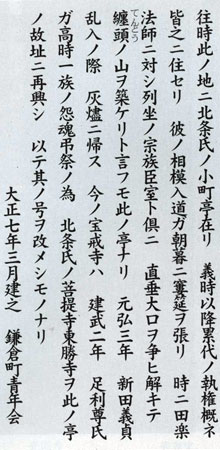 往時此ノ地ニ北条氏ノ小町亭在リ　義時以降累代ノ執権概ネ
皆之ニ住セリ　彼ノ相模入道ガ朝暮ニ宴筵ヲ張リ　時ニ田楽
法師ニ対シ列坐ノ宗族臣室ト倶ニ　直垂大口ヲ争ヒ解キテ
纏頭ノ山ヲ築ケリト言フモ此ノ亭ナリ　元弘三年　新田義貞
てんとう
乱入ノ際　灰燼ニ帰ス　今ノ宝戒寺ハ　建武二年　足利尊氏
ガ高時一族ノ怨魂弔祭ノ為　北条氏ノ菩提寺東勝寺ヲ此ノ亭
ノ故址ニ再興シ　以テ其ノ号ヲ改メシモノナリ
大正七年三月建之　鎌倉町青年会